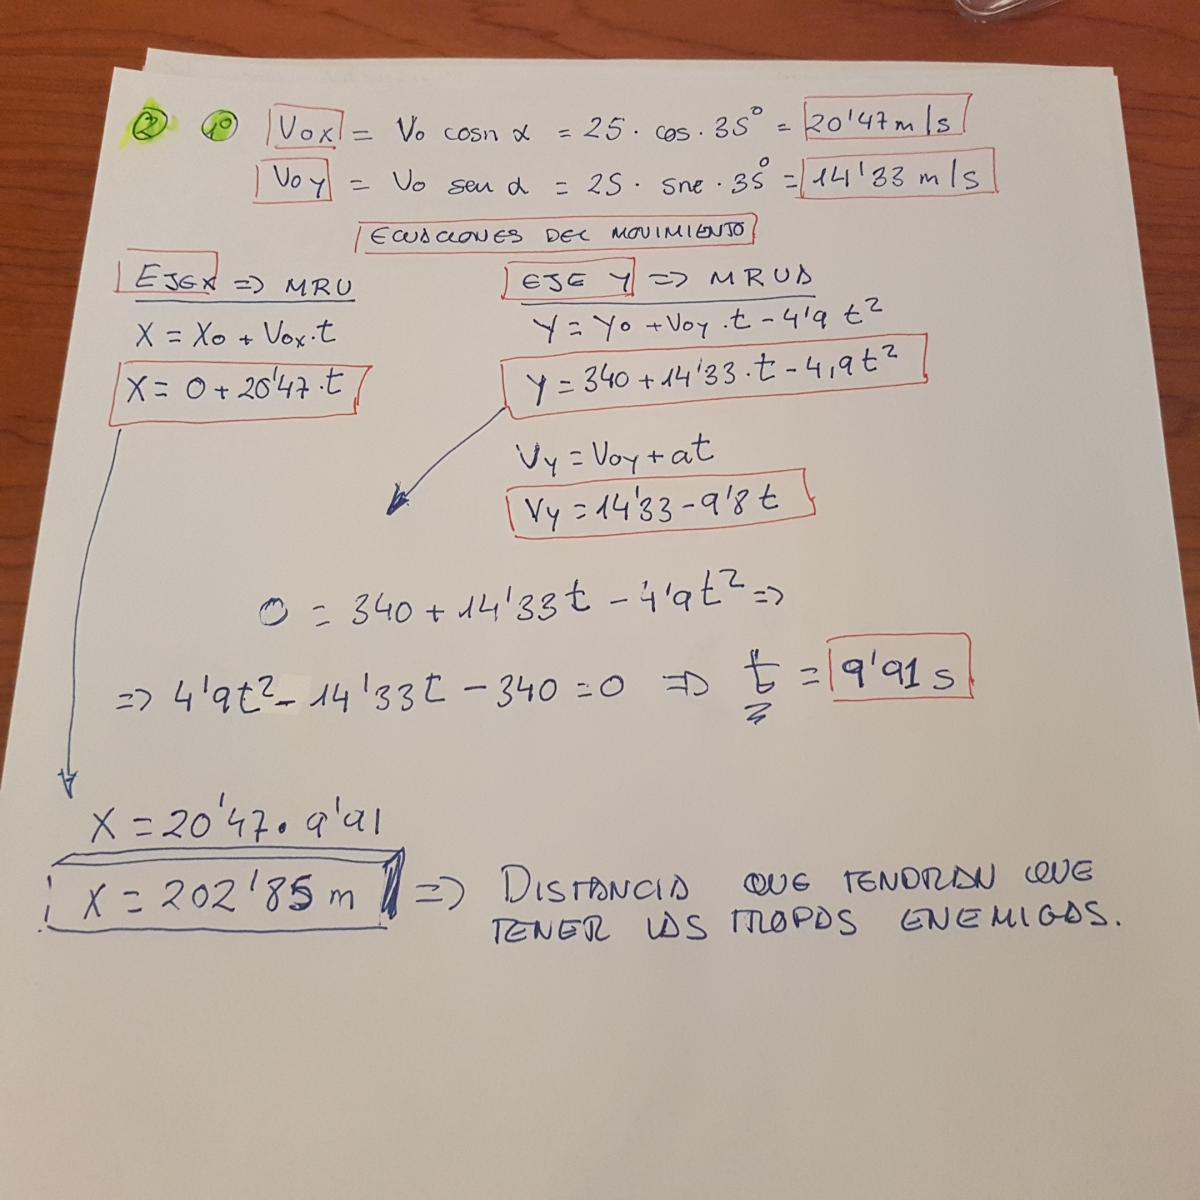 2 1º Vox = Vo cosn α = 25 · cos · 35º = 20'47 m/s
Voy = Vo sen α = 25 · sne · 35º = 14'33 m/s
ECUACIONES DEL MOVIMIENTO
EJE X => MRU
X = Xo + Vox · t
X = 0 + 20'47 · t
EJE Y => MRUA
Y = Yo + Voy · t - 4'9 t²
Y = 340 + 14'33 · t - 4,9 t²
Vy = Voy + at
Vy = 14'33 - 9'8 t
0 = 340 + 14'33 t - 4'9 t² =>
=> 4'9t² - 14'33t - 340 = 0 => t = 9'91 s
X = 20'47 · 9'91
X = 202'85 m => DISTANCIA QUE TENDRAN QUE
TENER LAS TROPAS ENEMIGAS.